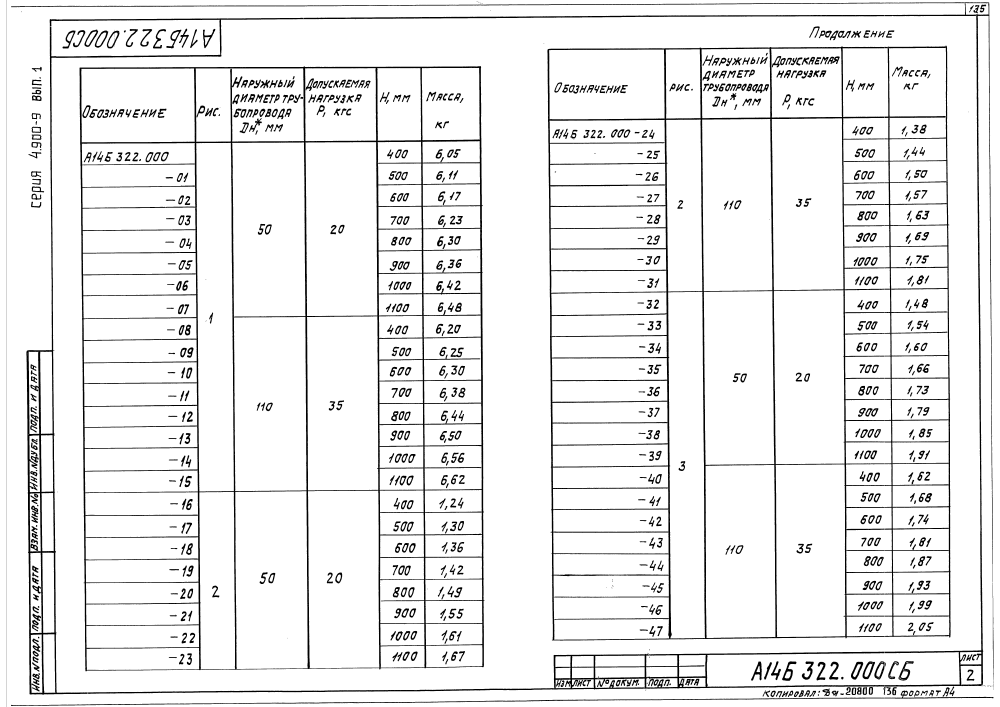 125
А14Б322.000СБ
Продолжение
Серия 4.900-9 вып. 1
Обозначение | Рис. | Наружный диаметр трубопровода Дн*, мм | Допускаемая нагрузка Р, кгс | Н, мм | Масса, кг
А14Б 322.000 | 1 | 50 | 20 | 400 | 6,05
-01 | 500 | 6,11
-02 | 600 | 6,17
-03 | 700 | 6,23
-04 | 800 | 6,30
-05 | 900 | 6,36
-06 | 1000 | 6,42
-07 | 1100 | 6,48
-08 | 110 | 35 | 400 | 6,20
-09 | 500 | 6,25
-10 | 600 | 6,30
-11 | 700 | 6,38
-12 | 800 | 6,44
-13 | 900 | 6,50
-14 | 1000 | 6,56
-15 | 1100 | 6,62
-16 | 2 | 50 | 20 | 400 | 1,24
-17 | 500 | 1,30
-18 | 600 | 1,36
-19 | 700 | 1,42
-20 | 800 | 1,49
-21 | 900 | 1,55
-22 | 1000 | 1,61
-23 | 1100 | 1,67
Обозначение | Рис. | Наружный диаметр трубопровода Дн*, мм | Допускаемая нагрузка Р, кгс | Н, мм | Масса, кг
А14Б 322.000-24 | 2 | 110 | 35 | 400 | 1,38
-25 | 500 | 1,44
-26 | 600 | 1,50
-27 | 700 | 1,57
-28 | 800 | 1,63
-29 | 900 | 1,69
-30 | 1000 | 1,75
-31 | 1100 | 1,81
-32 | 3 | 50 | 20 | 400 | 1,48
-33 | 500 | 1,54
-34 | 600 | 1,60
-35 | 700 | 1,66
-36 | 800 | 1,73
-37 | 900 | 1,79
-38 | 1000 | 1,85
-39 | 1100 | 1,91
-40 | 110 | 35 | 400 | 1,62
-41 | 500 | 1,68
-42 | 600 | 1,74
-43 | 700 | 1,81
-44 | 800 | 1,87
-45 | 900 | 1,93
-46 | 1000 | 1,99
-47 | 1100 | 2,05
Инв. № подл. | Подп. и дата | Взам. инв. № | Инв. № дубл. | Подп. и дата
Изм. | Лист | № докум. | Подп. | Дата
А14Б 322.000СБ
Лист
2
Копировал: 20800 136 формат А4